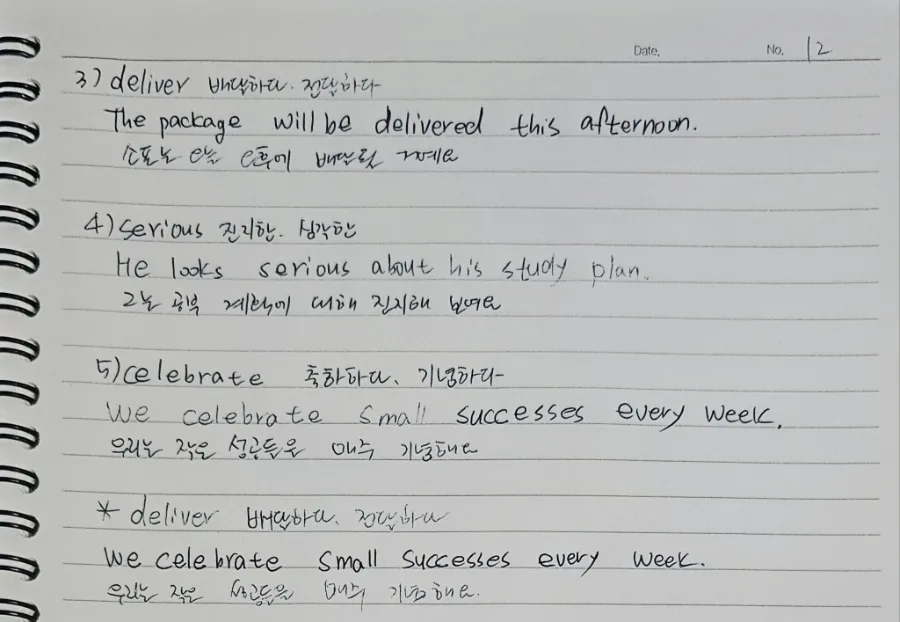 Date.
No. 12
3) deliver 배달하다. 전달하다
The package will be delivered this afternoon.
소포는 오늘 오후에 배달될 거예요
4) serious 진지한. 심각한
He looks serious about his study plan.
그는 공부 계획에 대해 진지해 보여요
5) celebrate 축하하다, 기념하다
We celebrate small successes every week.
우리는 작은 성공들을 매주 기념해요
* deliver 배달하다, 전달하다
We celebrate small successes every week.
우리는 작은 성공들을 매주 기념해요.